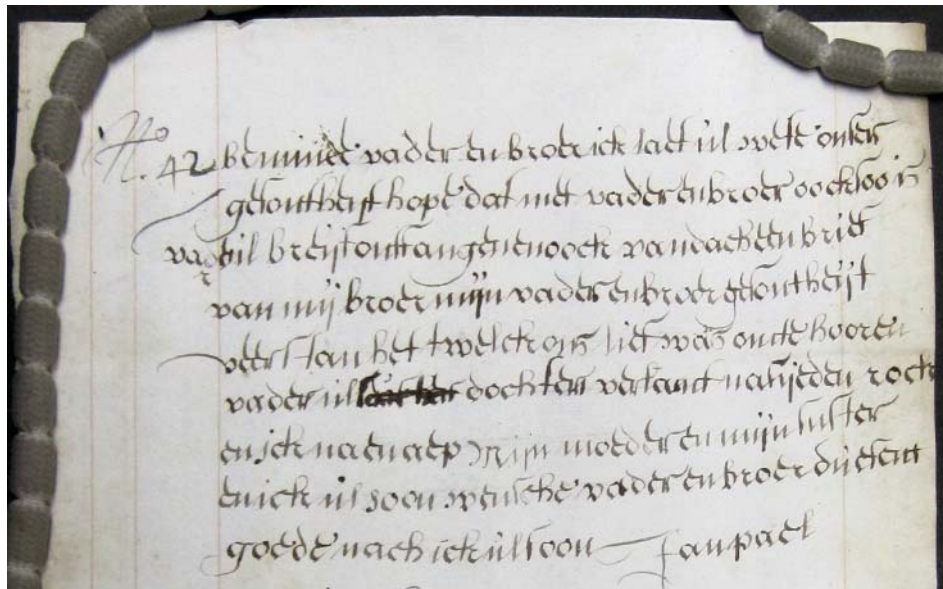 No. 42 beminde vader en broer ick laet ul wete onsen
gesontheijt hope dat met vader en broer oock soo is
vader ul breijf ontfangen en oock vandach een brief
van mij broer mijn vader en broer gesontheijt
veerstan het twelck ons lief was om te hooren
vader ul dochters verlanct na rock
en ick na en aep Mijn moeder en mijn suster
en ick ul soon wensche vader en broer duesent
goede nach ick ul soon Jan pael